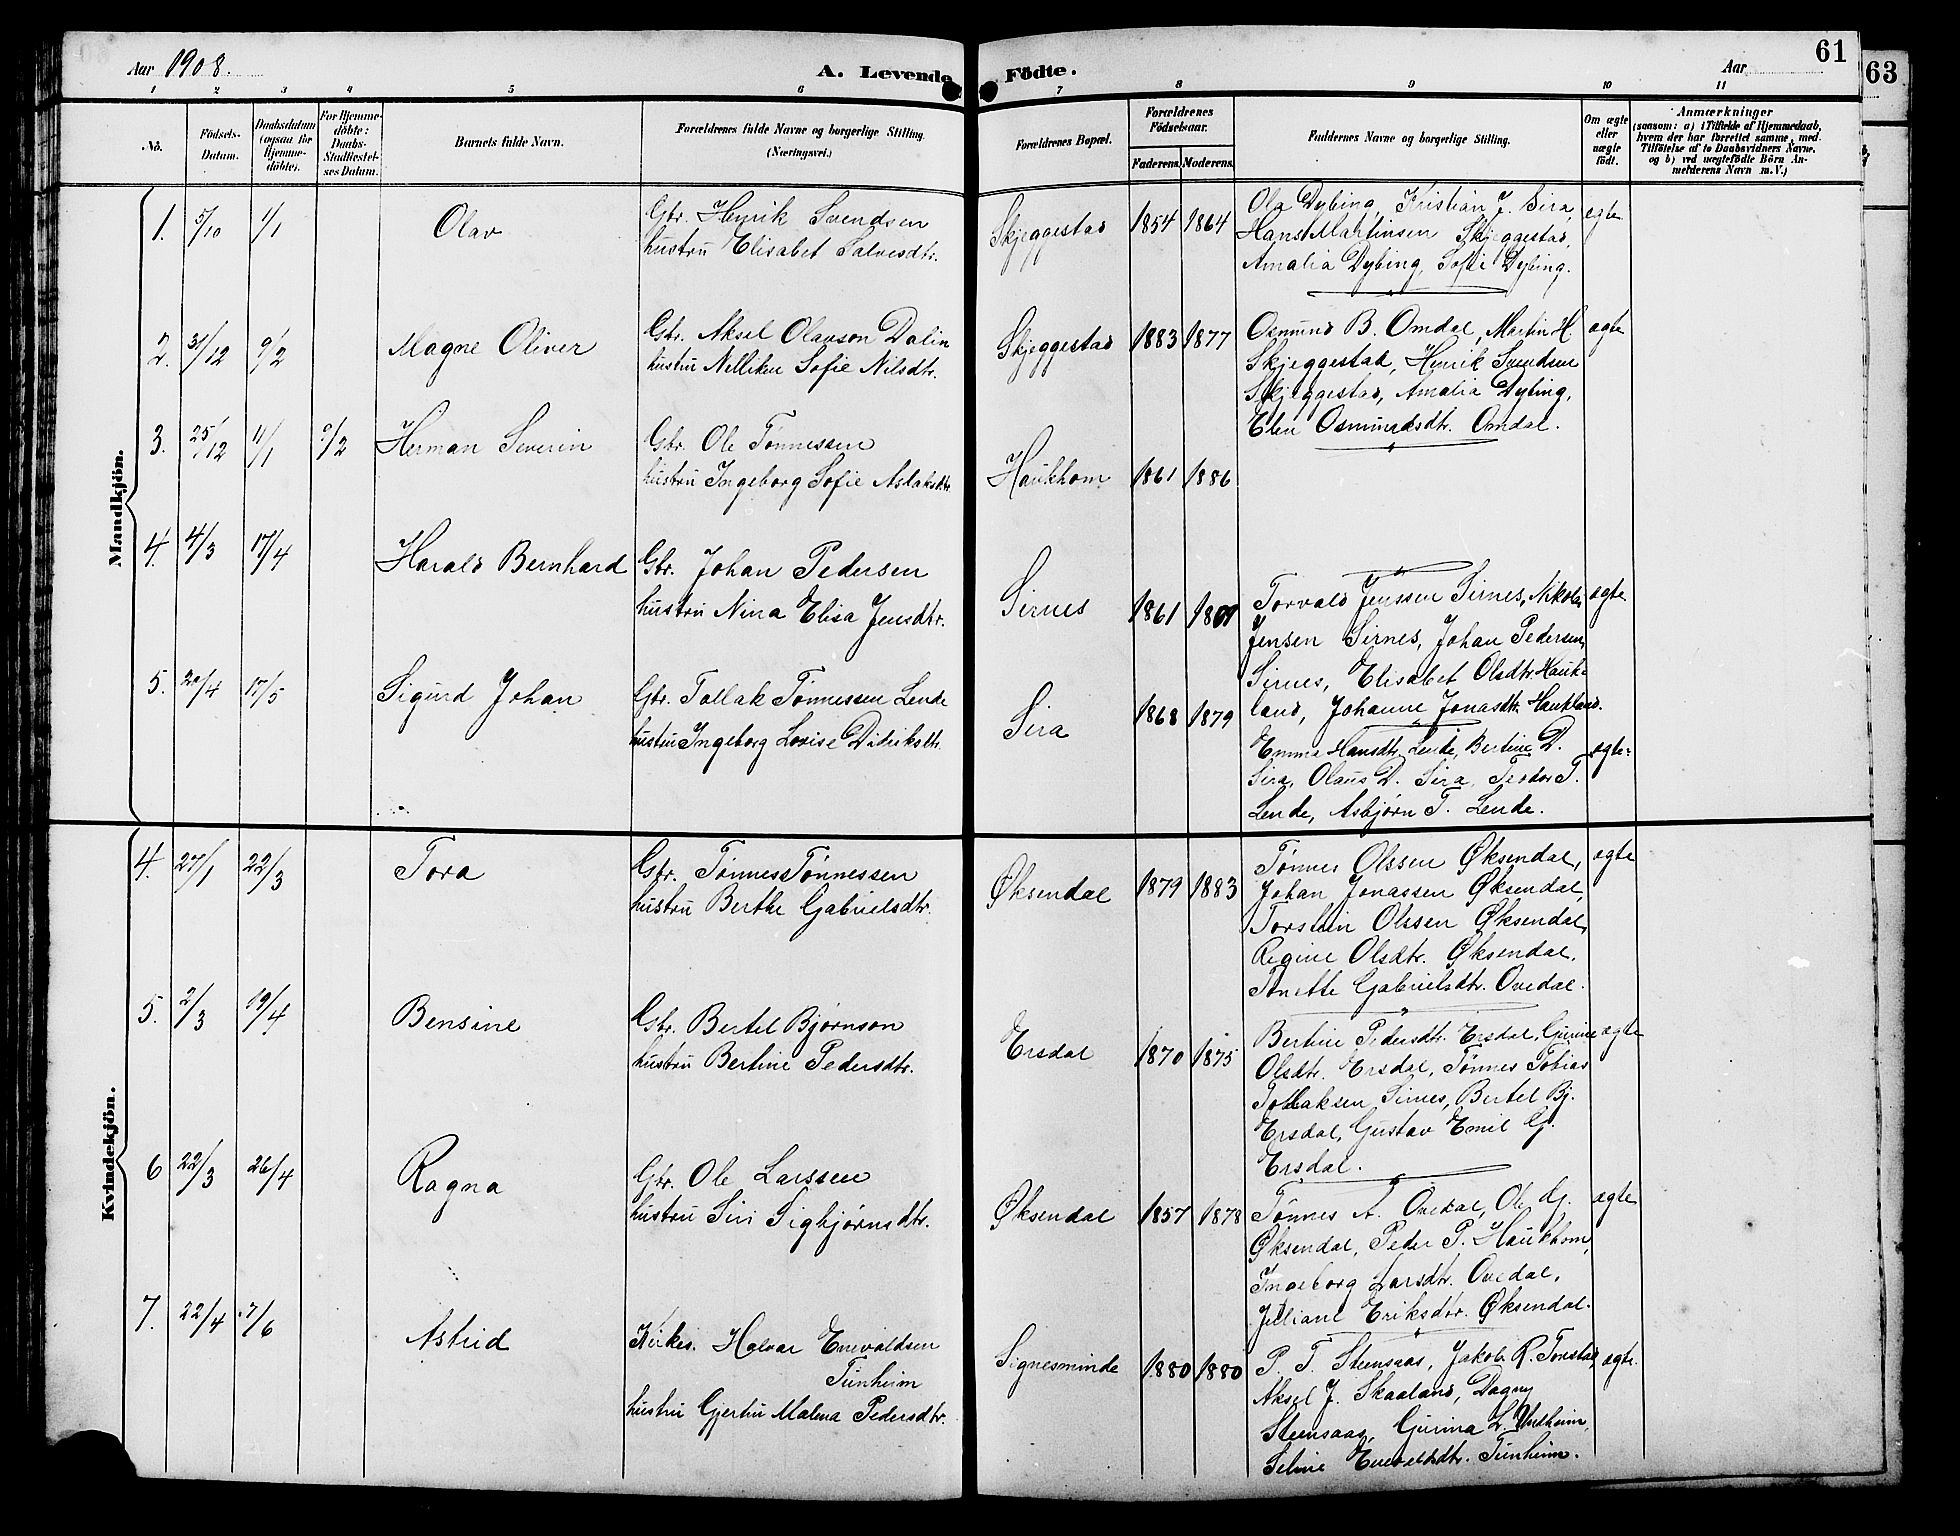 Aar 1908.
A. Levende Födte.
Aar
61
63
1 2 3 4 5 6 7 8 9 10 11
No.
Födsels-
Datum.
Daabsdatum
(ogsaa for
Hjemme-
döbte).
For Hjemme-
döbte:
Daabs-
Stadfæstel-
ses Datum.
Barnets fulde Navn.
Forældrenes fulde Navne og borgerlige Stilling.
(Næringsvei.)
Forældrenes Bopæl.
Forældrenes
Födselsaar.
Faderens. Moderens.
Faddernes Navne og borgerlige Stilling.
Om ægte
eller
uægte
födt.
Anmærkninger
(saasom: a) i Tilfælde af Hjemmedaab,
hvem der har forrettet samme, med
Tilföielse af to Daabsvidners Navne,
og b) ved uægtefödte Börn An-
melderens Navn m. V.)
Mandkjön.
1. 5/10 1/1 Olav
Gbr. Henrik Svendsen
hustru Elisabet Salvesdtr.
Skjeggestad 1854 1864
Ola Dybing, Kristian J. Sira,
Hans Martinsen Skjeggestad,
Amalia Dybing, Sofie Dybing.
ægte
2. 31/12 9/2 Magne Oliver
Gbr. Aksel Olavson Dalin
hustru Nelliken Sofie Nilsdtr.
Skjeggestad 1883 1877
Osmund B. Omdal, Martin H.
Skjeggestad, Henrik Svendsen
Skjeggestad, Amalia Dybing,
Elen Osmundsdtr. Omdal.
ægte
3. 25/12 11/1 9/2 Herman Severin
Gbr. Ole Tønnessen
hustru Ingeborg Sofie Aslaksdtr.
Haukhom 1861 1886
4. 4/3 17/4 Harald Bernhard
Gbr. Johan Pedersen
hustru Nina Elisa Jensdtr.
Sirnes 1861
Torvald Jenssen Sirnes, Nikolai
Jensen Sirnes, Johan Pedersen
Sirnes, Elisabet Olsdtr. Hauk-
land, Johanne Jonasdtr. Haukland.
ægte
5. 20/4 17/5 Sigurd Johan
Gbr. Tallak Tønnessen Lende
hustru Ingeborg Lovise Didriksdtr.
Sira 1868 1879
Emma Hansdtr. Lende, Bertine D.
Sira, Olaus D. Sira, Teodor T.
Lende, Asbjørn T. Lende.
ægte
Kvindekjön.
4. 27/1 22/3 Tora
Gbr. Tønnes Tønnessen
hustru Berthe Gabrielsdtr.
Øksendal 1879 1883
Tønnes Olssen Øksendal,
Johan Jonassen Øksendal,
Torstein Olssen Øksendal,
Regine Olsdtr. Øksendal,
Tonette Gabrielsdtr. Ovedal.
ægte
5. 2/3 19/4 Bensine
Gbr. Bertel Bjørnson
hustru Bertine Pedersdtr.
Ersdal 1870 1875
Bertine Pedersdtr. Ersdal, Gurine
Olsdtr. Ersdal, Tønnes Tobias
Tollaksen Sirnes, Bertel Bj.
Ersdal, Gustav Emil G.
Ersdal.
ægte
6 22/3 26/4 Ragna
Gbr. Ole Larssen
hustru Siri Sigbjørnsdtr.
Øksendal 1857 1878
Tønnes A. Ovedal, Ole G.
Øksendal, Peder P. Haukhom,
Ingeborg Larsdtr. Ovedal,
Jilliane Eriksdtr. Øksendal.
ægte
7. 22/4 7/6 Astrid
Kirkes. Halvar Enevaldsen
Tunheim
hustru Gjertru Malena Pedersdtr.
Signesminde 1880 1880
P. T. Steensaas, Jakob R. Tonstad
Aksel J. Skaaland, Dagny
Steensaas, Gurina L.
Seline Enevaldsdtr. Tunheim.
ægte